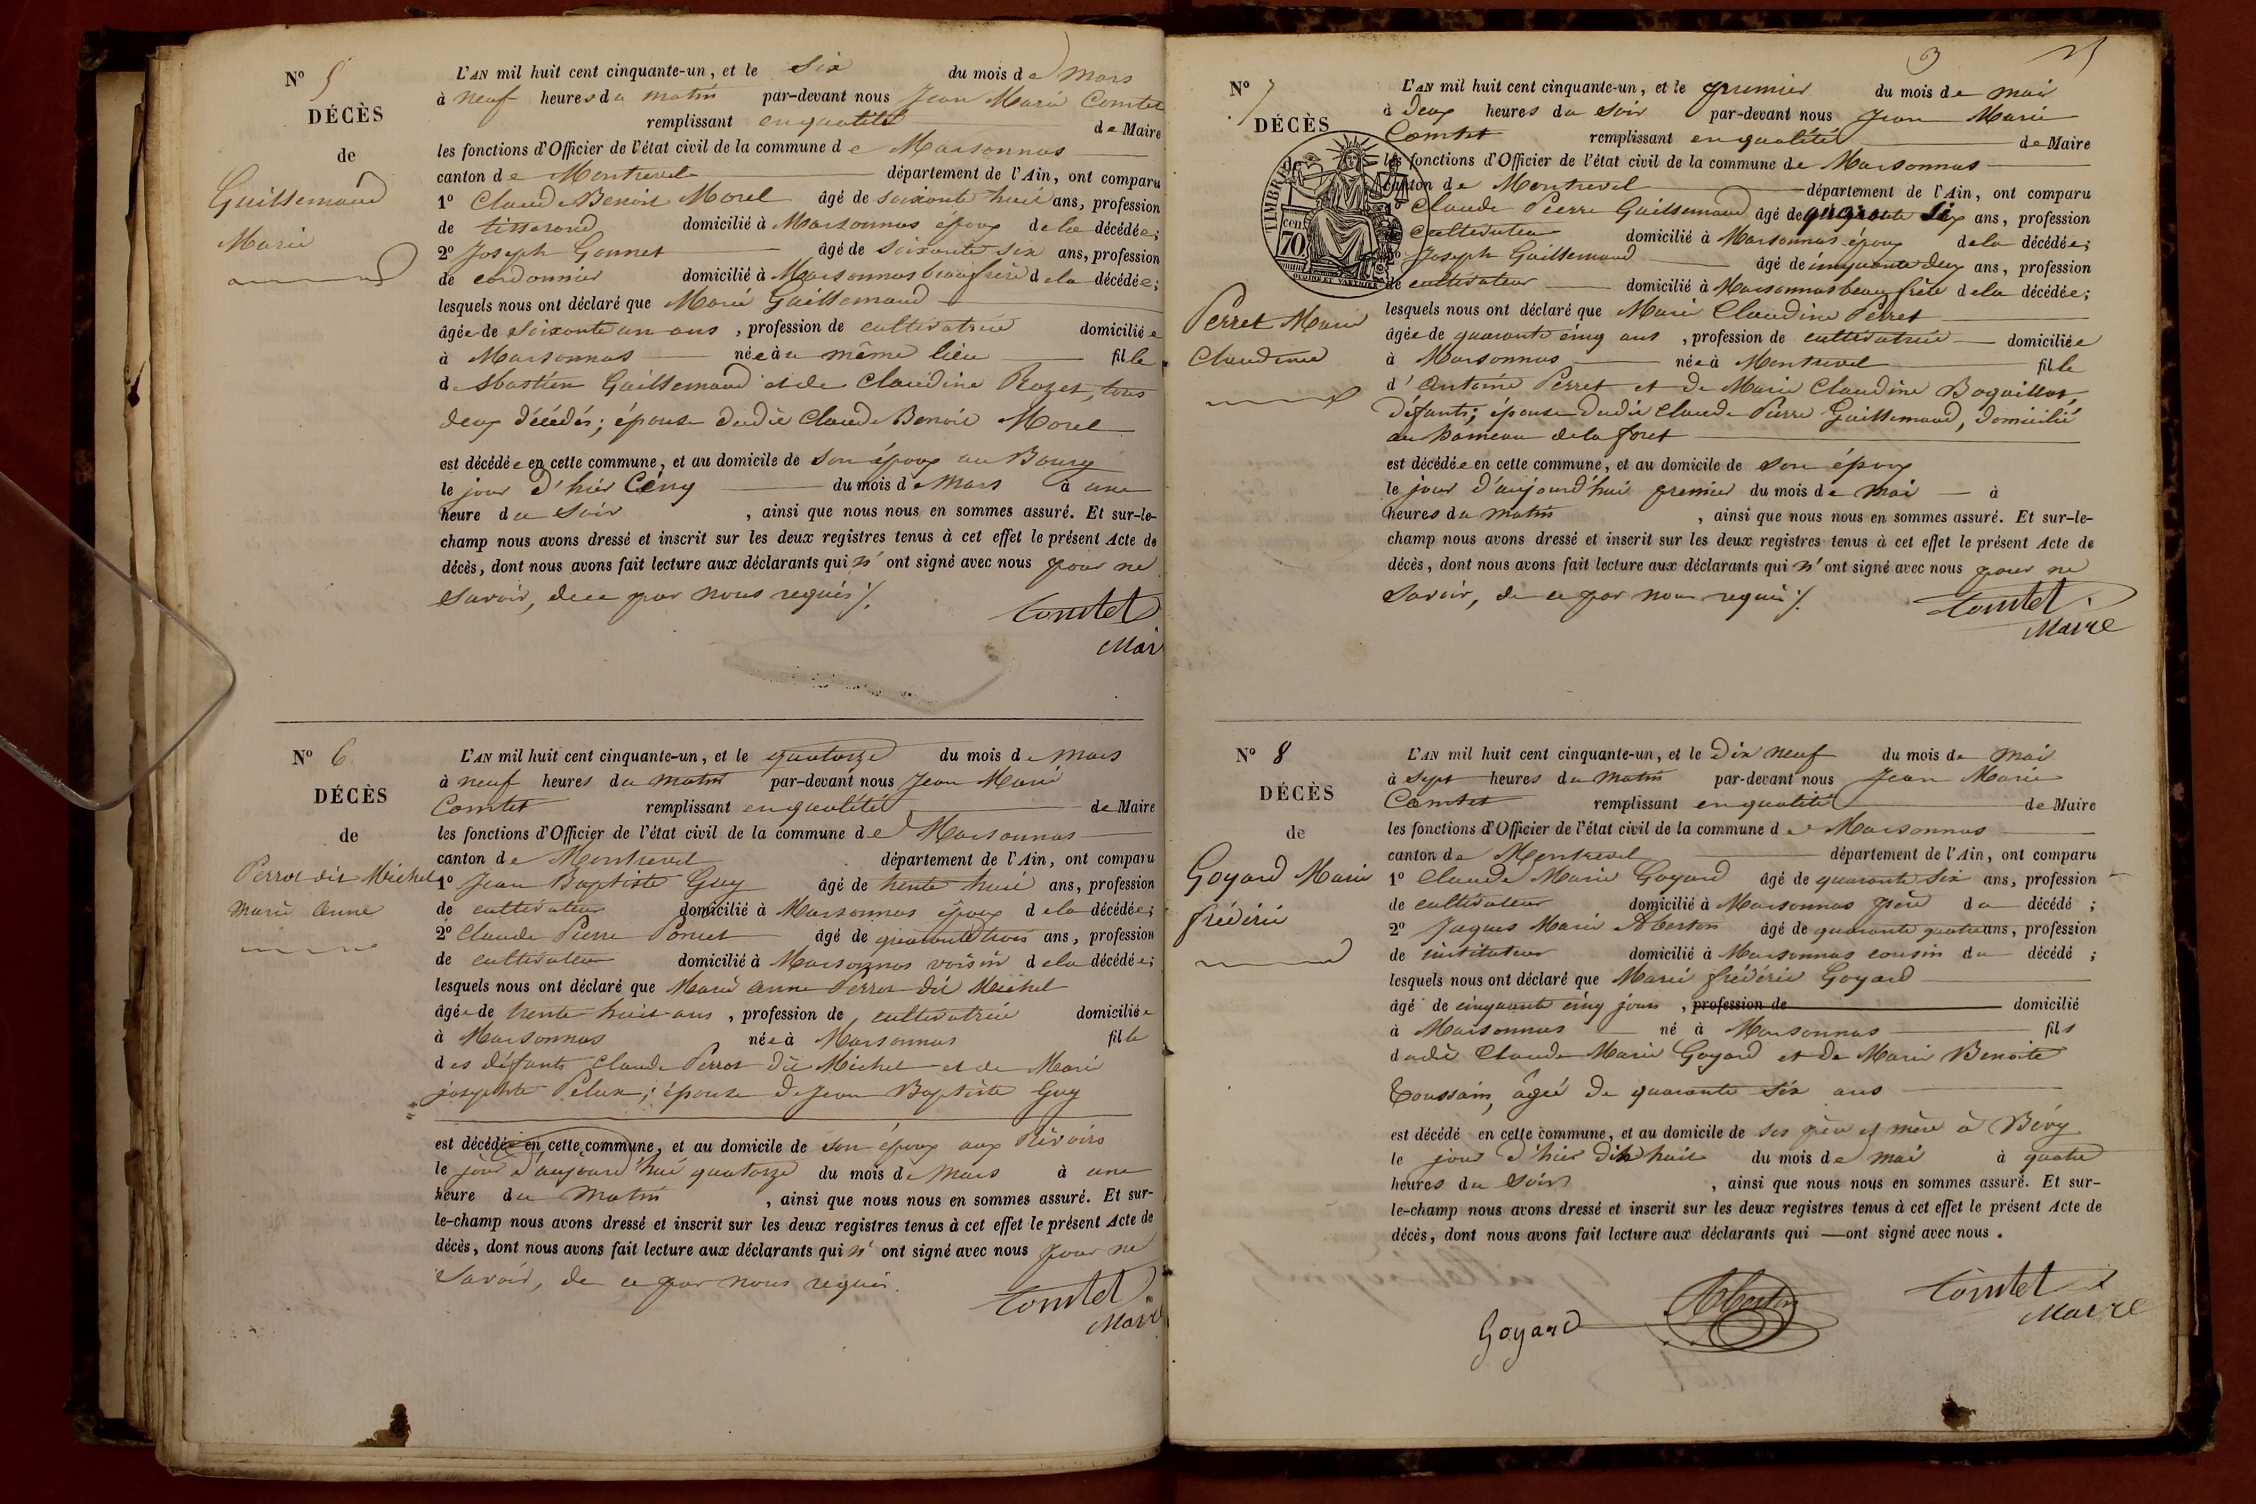 N° 5
DÉCÈS
de
Guillemaud
Marie
L'AN mil huit cent cinquante-un, et le six du mois de Mars
à neuf heures du matin par-devant nous Jean Marie Comtet
remplissant en qualité de Maire
les fonctions d'Officier de l'état civil de la commune de Marsonnas
canton de Montrevel département de l'Ain, ont comparu
1° Claude Benoit Morel âgé de soixante huit ans, profession
de tisserand domicilié à Marsonnas époux de la décédée;
2° Joseph Gonnet âgé de soixante six ans, profession
de cordonnier domicilié à Marsonnas beaufrère de la décédée;
lesquels nous ont déclaré que Marie Guillemaud
âgée de soixante un ans, profession de cultivatrice domiciliée
à Marsonnas née au même lieu fille
de Sbastien Guillemaud et de Claudine Rozet, tous
deux décédés; épouse dudit Claude Benoit Morel
est décédée en cette commune, et au domicile de son époux au Bourg
le jour d'hier Cinq du mois de Mars à une
heure du soir, ainsi que nous nous en sommes assuré. Et sur-le-
champ nous avons dressé et inscrit sur les deux registres tenus à cet effet le présent Acte de
décès, dont nous avons fait lecture aux déclarants qui n'ont signé avec nous pour ne
savoir, de ce par nous requis ./.
Comtet
Mair
N° 6
DÉCÈS
de
Perrot dit Michel
marie anne
L'AN mil huit cent cinquante-un, et le quatorze du mois de Mars
à neuf heures du matin par-devant nous Jean Marie
Comtet remplissant en qualité de Maire
les fonctions d'Officier de l'état civil de la commune de Marsonnas
canton de Montrevel département de l'Ain, ont comparu
1° Jean Baptiste Guy âgé de trente huit ans, profession
de cultivateur domicilié à Marsonnas époux de la décédée;
2° Claude Pierre Poncet âgé de quarante trois ans, profession
de cultivateur domicilié à Marsonnas voisin de la décédée;
lesquels nous ont déclaré que Marie Anne Perrot dit Michel
âgée de trente huit ans, profession de cultivatrice domiciliée
à Marsonnas née à Marsonnas fille
des défunts Claude Perrot dit Michel et de Marie
josephte Pelux; épouse de Jean Baptiste Guy
est décédée en cette commune, et au domicile de son époux aux Rivoirs
le jour d'aujourd'hui quatorze du mois de Mars à une
heure du matin, ainsi que nous nous en sommes assuré. Et sur-
le-champ nous avons dressé et inscrit sur les deux registres tenus à cet effet le présent Acte de
décès, dont nous avons fait lecture aux déclarants qui n'ont signé avec nous pour ne
savoir, de ce par nous requis.
Comtet
Mair
3
N° 7
DÉCÈS
TIMBRE
cen
70
Perret Marie
Claudine
L'AN mil huit cent cinquante-un, et le premier du mois de mai
à deux heures du soir par-devant nous Jean Marie
Comtet remplissant en qualité de Maire
les fonctions d'Officier de l'état civil de la commune de Marsonnas
canton de Montrevel département de l'Ain, ont comparu
1° Claude Pierre Guillemaud âgé de ans, profession
de cultivateur domicilié à Marsonnas époux de la décédée;
2° Joseph Guillemaud âgé de cinquante deux ans, profession
de cultivateur domicilié à Marsonnas beaufrère de la décédée;
lesquels nous ont déclaré que Marie Claudine Perret
âgée de quarante cinq ans, profession de cultivatrice domiciliée
à Marsonnas née à Montrevel fille
d'Antoine Perret et de Marie Claudine Boguillot,
défunts; épouse dudit Claude Pierre Guillemaud, domicilié
au hameau de la foret
est décédée en cette commune, et au domicile de son époux
le jour d'aujourd'hui premier du mois de mai à
heures du matin, ainsi que nous nous en sommes assuré. Et sur-le-
champ nous avons dressé et inscrit sur les deux registres tenus à cet effet le présent Acte de
décès, dont nous avons fait lecture aux déclarants qui n'ont signé avec nous pour ne
savoir, de ce par nous requis ./.
Comtet
Maire
N° 8
DÉCÈS
de
Goyard Marie
frédéric
L'AN mil huit cent cinquante-un, et le dix neuf du mois de mai
à sept heures du matin par-devant nous Jean Marie
Comtet remplissant en qualité de Maire
les fonctions d'Officier de l'état civil de la commune de Marsonnas
canton de Montrevel département de l'Ain, ont comparu
1° Claude Marie Goyard âgé de quarante six ans, profession
de cultivateur domicilié à Marsonnas père du décédé;
2° Jaques Marie Aberton âgé de quarante quatre ans, profession
de instituteur domicilié à Marsonnas cousin du décédé;
lesquels nous ont déclaré que Marie frédéric Goyard
âgé de cinquante cinq jours, profession de domicilié
à Marsonnas né à Marsonnas fils
dudit Claude Marie Goyard et de Marie Benoite
Toussain, âgée de quarante six ans
est décédé en cette commune, et au domicile de ses père et mère à Bévy
le jour d'hier dix huit du mois de mai à quatre
heures du soir, ainsi que nous nous en sommes assuré. Et sur-
le-champ nous avons dressé et inscrit sur les deux registres tenus à cet effet le présent Acte de
décès, dont nous avons fait lecture aux déclarants qui ont signé avec nous.
Goyard
Aberton
Comtet
Maire